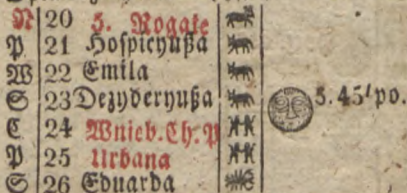 N 20 5. Rogate
P 21 Hospicyußa
W 22 Emila
S 23 Dezyderyußa 5.45' po.
C 24 Wnieb. Ch. P
P 25 Urbana
S 26 Eduarda